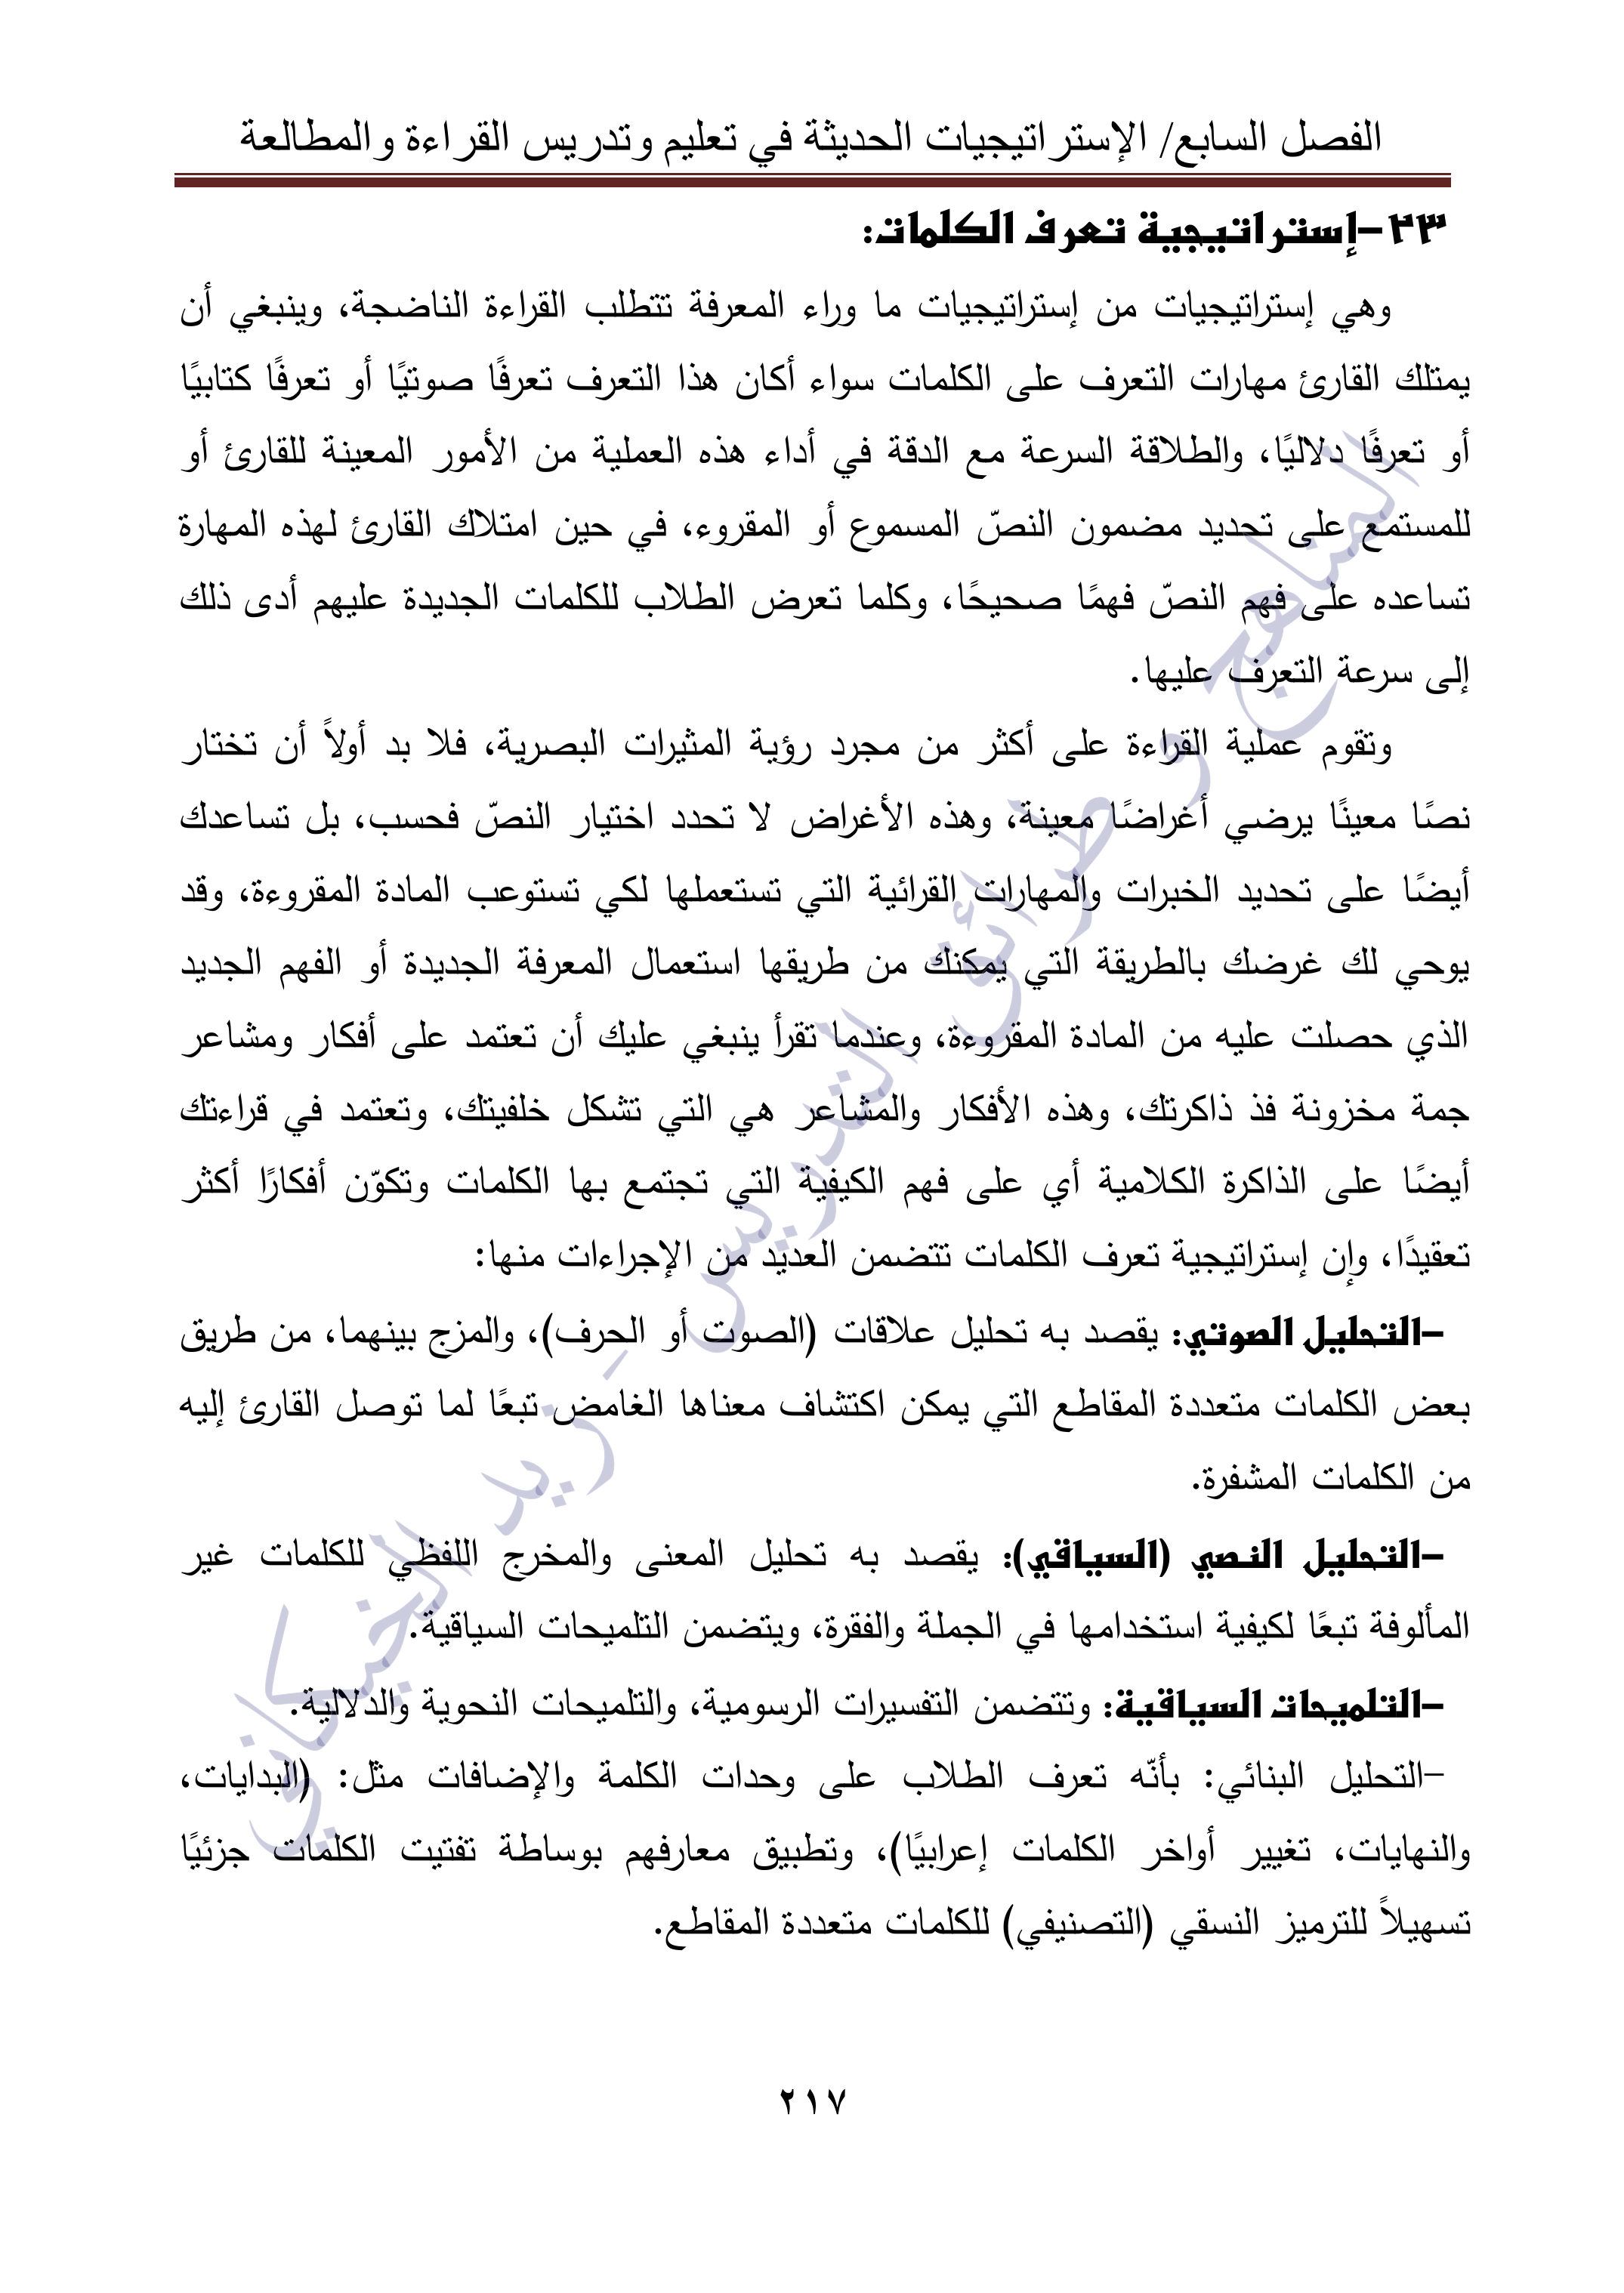 الفصل السابع/ الإستراتيجيات الحديثة في تعليم وتدريس القراءة والمطالعة
٢٣-إستراتيجية تعرف الكلمات:
وهي إستراتيجيات من إستراتيجيات ما وراء المعرفة تتطلب القراءة الناضجة، وينبغي أن
يمتلك القارئ مهارات التعرف على الكلمات سواء أكان هذا التعرف تعرفًا صوتيًا أو تعرفًا كتابيًا
أو تعرفًا دلاليًا، والطلاقة السرعة مع الدقة في أداء هذه العملية من الأمور المعينة للقارئ أو
للمستمع على تحديد مضمون النصّ المسموع أو المقروء، في حين امتلاك القارئ لهذه المهارة
تساعده على فهم النصّ فهمًا صحيحًا، وكلما تعرض الطلاب للكلمات الجديدة عليهم أدى ذلك
إلى سرعة التعرف عليها.
وتقوم عملية القراءة على أكثر من مجرد رؤية المثيرات البصرية، فلا بد أولاً أن تختار
نصًا معينًا يرضي أغراضًا معينة، وهذه الأغراض لا تحدد اختيار النصّ فحسب، بل تساعدك
أيضًا على تحديد الخبرات والمهارات القرائية التي تستعملها لكي تستوعب المادة المقروءة، وقد
يوحي لك غرضك بالطريقة التي يمكنك من طريقها استعمال المعرفة الجديدة أو الفهم الجديد
الذي حصلت عليه من المادة المقروءة، وعندما تقرأ ينبغي عليك أن تعتمد على أفكار ومشاعر
جمة مخزونة فذ ذاكرتك، وهذه الأفكار والمشاعر هي التي تشكل خلفيتك، وتعتمد في قراءتك
أيضًا على الذاكرة الكلامية أي على فهم الكيفية التي تجتمع بها الكلمات وتكوّن أفكارًا أكثر
تعقيدًا، وإن إستراتيجية تعرف الكلمات تتضمن العديد من الإجراءات منها:
-التحليل الصوتي: يقصد به تحليل علاقات (الصوت أو الحرف)، والمزج بينهما، من طريق
بعض الكلمات متعددة المقاطع التي يمكن اكتشاف معناها الغامض تبعًا لما توصل القارئ إليه
من الكلمات المشفرة.
-التحليل النصي (السياقي): يقصد به تحليل المعنى والمخرج اللفظي للكلمات غير
المألوفة تبعًا لكيفية استخدامها في الجملة والفقرة، ويتضمن التلميحات السياقية.
-التلميحات السياقية: وتتضمن التفسيرات الرسومية، والتلميحات النحوية والدلالية.
-التحليل البنائي: بأنّه تعرف الطلاب على وحدات الكلمة والإضافات مثل: (البدايات،
والنهايات، تغيير أواخر الكلمات إعرابيًا)، وتطبيق معارفهم بوساطة تفتيت الكلمات جزئيًا
تسهيلاً للترميز النسقي (التصنيفي) للكلمات متعددة المقاطع.
المناهج و طرائق التدريس - زيد الخيكاني
٢١٧